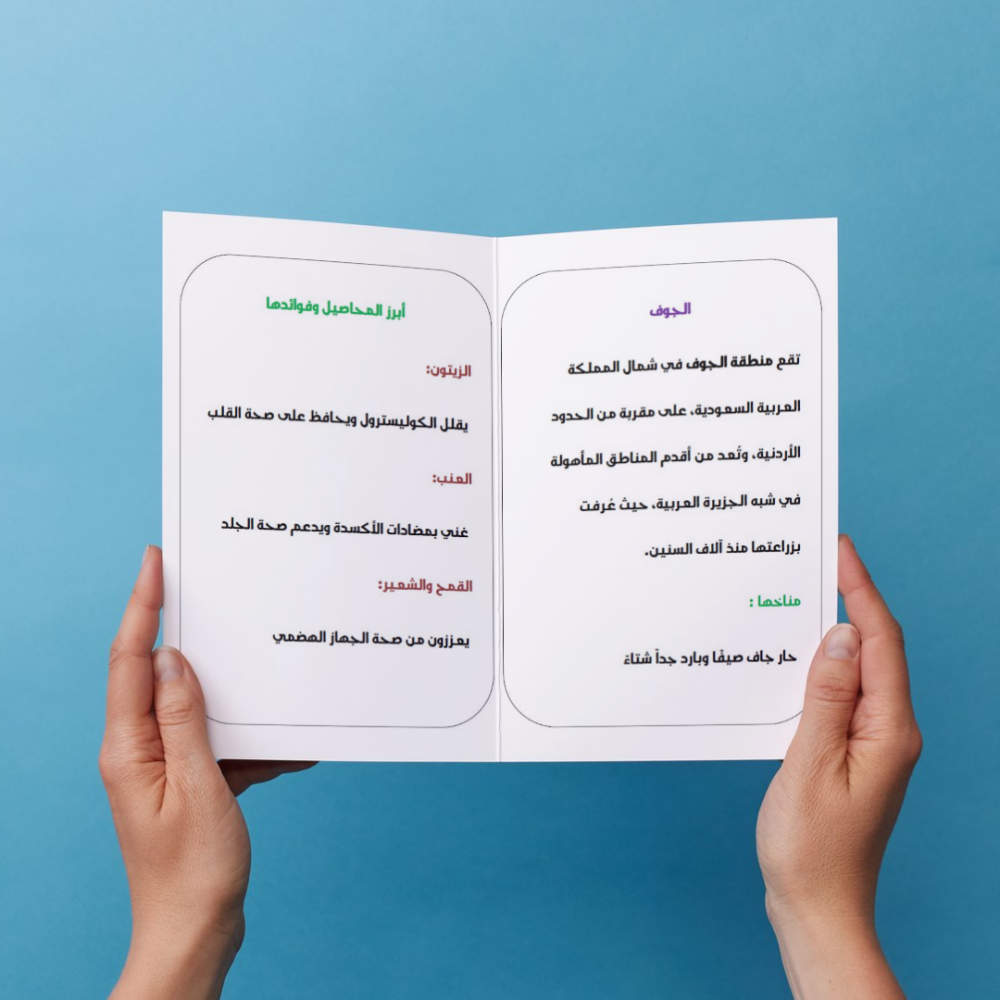 الجوف
تقع منطقة الجوف في شمال المملكة
العربية السعودية، على مقربة من الحدود
الأردنية، وتُعد من أقدم المناطق المأهولة
في شبه الجزيرة العربية، حيث عُرفت
بزراعتها منذ آلاف السنين.
مناخها :
حار جاف صيفًا وبارد جداً شتاءً
أبرز المحاصيل وفوائدها
الزيتون:
يقلل الكوليسترول ويحافظ على صحة القلب
العنب:
غني بمضادات الأكسدة ويدعم صحة الجلد
القمح والشعير:
يعززون من صحة الجهاز الهضمي